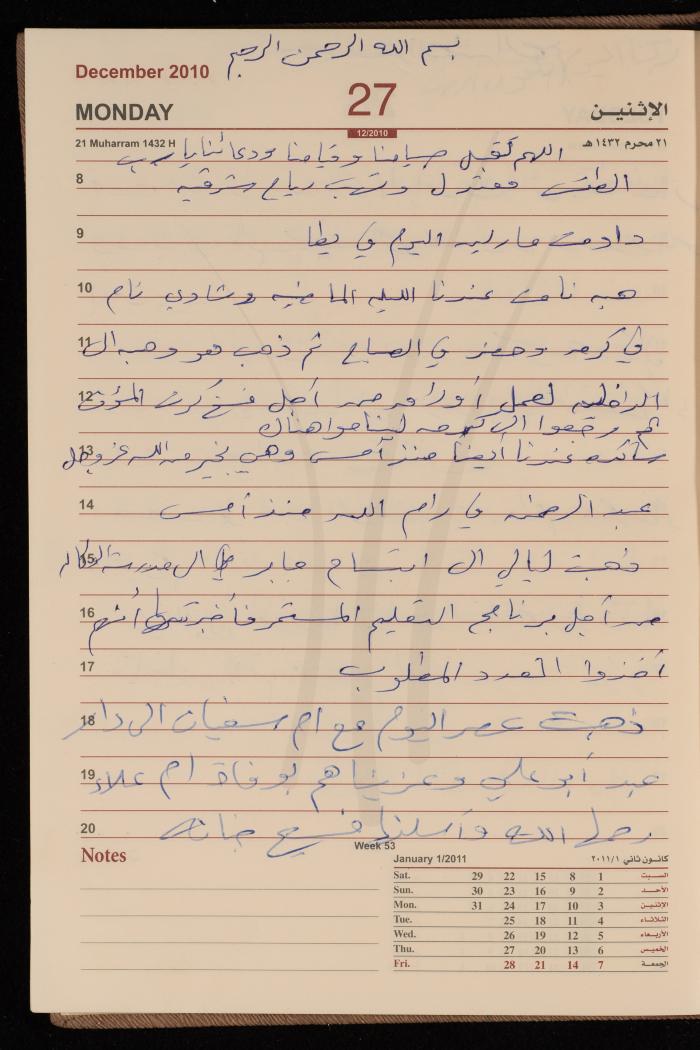 بسم الله الرحمن الرحيم
December 2010
MONDAY 27 الإثنين
12/2010
21 Muharram 1432 H ٢١ محرم ١٤٣٢ هـ
اللهم تقبل صيامنا وقيامنا ودعائنا يا رب
8 الطقس معتدل وتهب رياح شرقيه
9 داومت ماريه اليوم في يطا
10 هبه نامت عندنا الليله الماضيه وشادي نام
11 في كرمه وحضر في الصباح ثم ذهب هو وهبه الى
12 الداخليه لعمل أوراق من أجل
ثم رجعوا الى كرمه ليناموا هناك
13 عندنا أيضاً منذ أمس وهي بخير من الله عز وجل
14 عبد الرحمن في رام الله منذ أمس
15 ذهبت ليالي الى ابتسام جابر الى مدرسة الوكاله
16 من أجل برنامج التعليم المستمر فأخبرتها أنهم
17 أخذوا العدد المطلوب
18 ذهبت عصر اليوم مع ام سفيان الى دار
19 عبد أبو علي وعزيناهم بوفاة ام علاء
20 رحمها الله وأسكنها فسيح جناته
Week 53
Notes
January 1/2011 كانون ثاني ٢٠١١/١
Sat. 29 22 15 8 1 السبت
Sun. 30 23 16 9 2 الأحد
Mon. 31 24 17 10 3 الإثنين
Tue. 25 18 11 4 الثلاثاء
Wed. 26 19 12 5 الأربعاء
Thu. 27 20 13 6 الخميس
Fri. 28 21 14 7 الجمعة